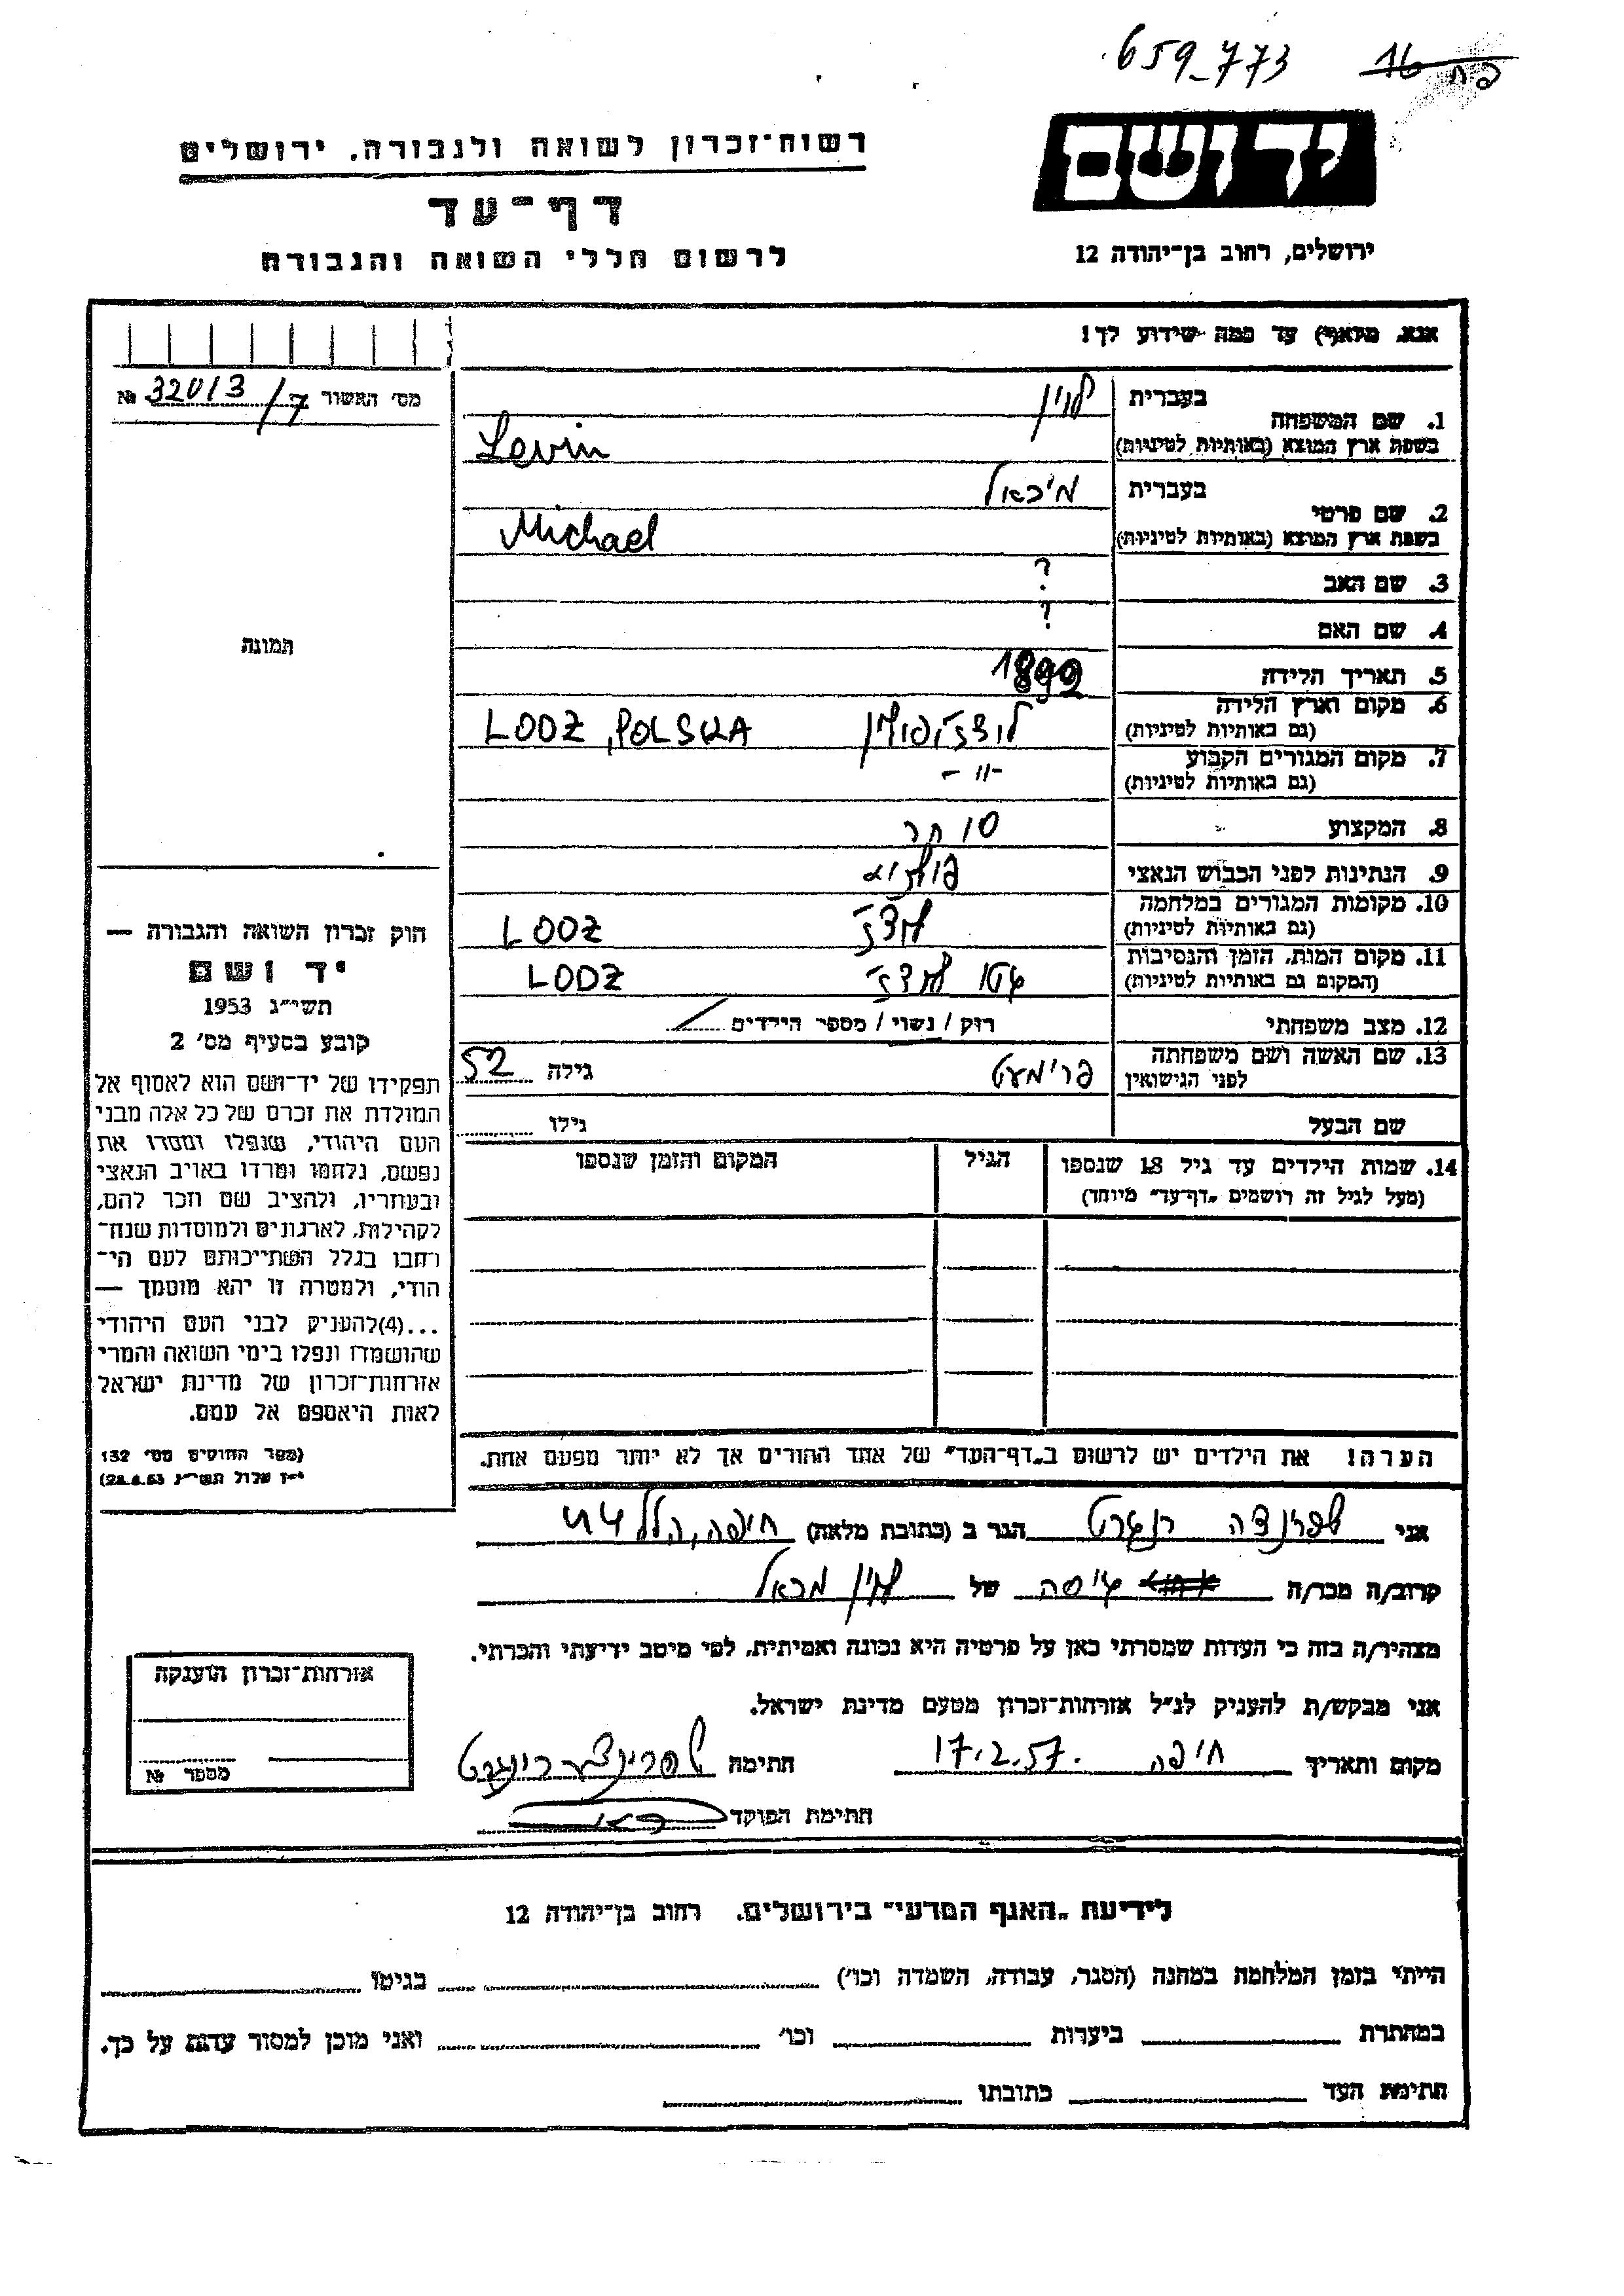 659_773 16
רשות־זכרון לשואה ולגבורה. ירושלים
יד ושם
דף־עד
לרשום חללי השואה והגבורה
ירושלים, רחוב בן־יהודה 12
אנא. מלא(י) עד כמה שידוע לך!
מס׳ האשור 32013/7 №
1. שם המשפחה
בעברית לוין
בשפת ארץ המוצא (באותיות לטיניות) Levin
2. שם פרטי
בעברית מיכאל
בשפת ארץ המוצא (באותיות לטיניות) Michael
3. שם האב ?
4. שם האם ?
5. תאריך הלידה 1899
6. מקום וארץ הלידה
(גם באותיות לטיניות) לודז׳, פולין LODZ, POLSKA
7. מקום המגורים הקבוע
(גם באותיות לטיניות) -"-
8. המקצוע סוחר
9. הנתינות לפני הכבוש הנאצי פולנית
10. מקומות המגורים במלחמה
(גם באותיות לטיניות) לודז׳ LODZ
11. מקום המות, הזמן והנסיבות
(המקום גם באותיות לטיניות) גטו לודז׳ LODZ
12. מצב משפחתי רוק / נשוי / מספר הילדים
13. שם האשה ושם משפחתה
לפני הנישואין גילה 52
שם הבעל גילו
14. שמות הילדים עד גיל 18 שנספו הגיל המקום והזמן שנספו
(מעל לגיל זה רושמים „דף־עד״ מיוחד)
הערה! את הילדים יש לרשום ב„דף־העד״ של אחד ההורים אך לא יותר מפעם אחת.
תמונה
חוק זכרון השואה והגבורה —
יד ושם
תשי״ג 1953
קובע בסעיף מס׳ 2
תפקידו של יד־ושם הוא לאסוף אל
המולדת את זכרם של כל אלה מבני
העם היהודי, שנפלו ומסרו את
נפשם, נלחמו ומרדו באויב הנאצי
ובעוזריו, ולהציב שם וזכר להם,
לקהילות, לארגונים ולמוסדות שנח־
רבו בגלל השתייכותם לעם הי־
הודי, ולמטרה זו יהא מוסמך —
...(4)להעניק לבני העם היהודי
שהושמדו ונפלו בימי השואה והמרי
אזרחות־זכרון של מדינת ישראל
לאות היאספם אל עמם.
(ספר החוקים מס׳ 132
י״ז אלול תשי״ג 28.8.53)
אני הגר ב (כתובת מלאה) חיפה, הלל 44
קרוב/ה מכר/ה גיסה של לוין מכאל
מצהיר/ה בזה כי העדות שמסרתי כאן על פרטיה היא נכונה ואמיתית, לפי מיטב ידיעתי והכרתי.
אני מבקש/ת להעניק לנ״ל אזרחות־זכרון מטעם מדינת ישראל.
מקום ותאריך חיפה 17.2.57. חתימה
חתימת הפוקד
אזרחות־זכרון הוענקה
מספר №
לידיעת „האגף המדעי״ בירושלים. רחוב בן־יהודה 12
הייתי בזמן המלחמה במחנה (הסגר, עבודה, השמדה וכו׳) בגיטו
במחתרת ביערות וכו׳ ואני מוכן למסור עדות על כך.
חתימת העד כתובתו